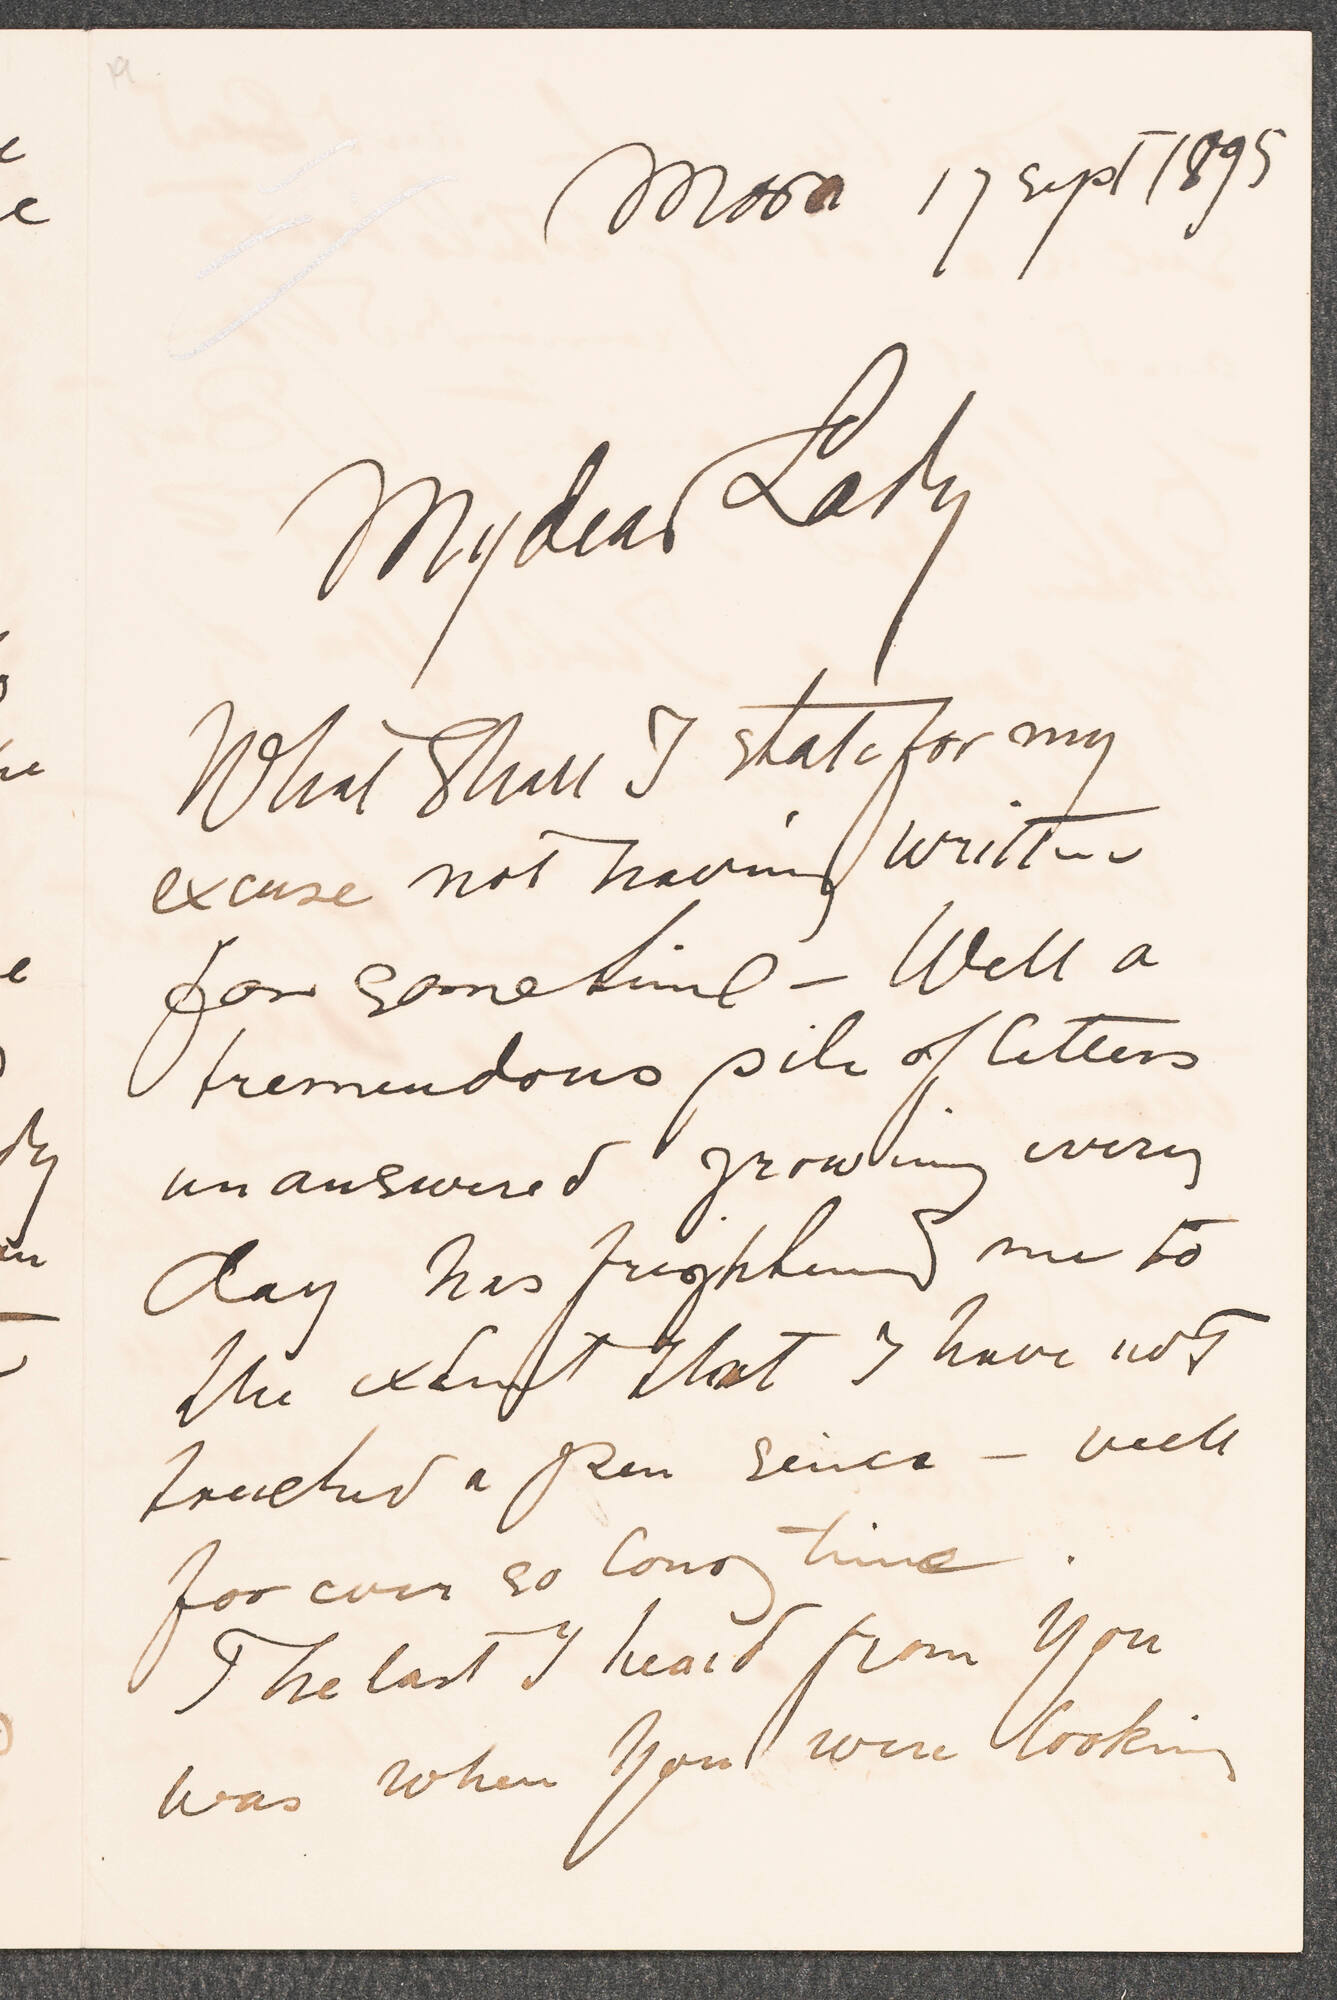 Mora 17 Sept 1895
My dear Lady
What Shall I state for my
excuse not having written
for sometime – Well a
tremendous pile of letters
unanswered growing every
day has frightened me to
the extent that I have not
touched a pen since – well
for ever so long time.
The last I heard from you
was when you were looking